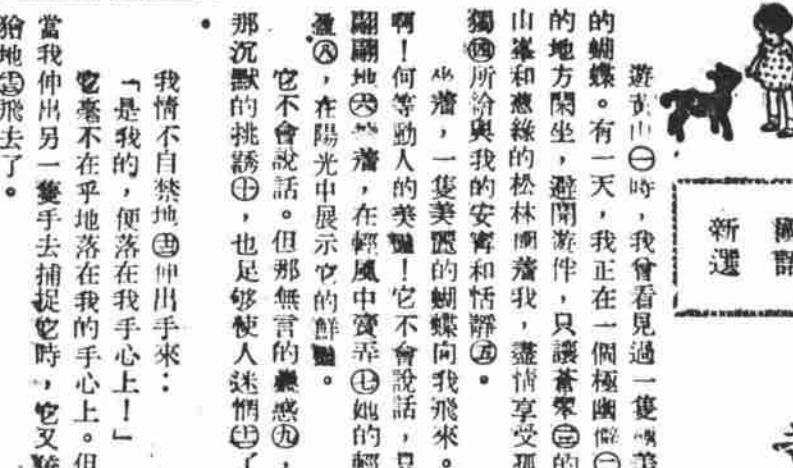 國語
新選
遊黃山㊀時,我曾看見過一隻美
的蝴蝶。有一天,我正在一個極幽僻㊁
的地方閑坐,避開游伴,只讓蒼翠㊂的
山峯和蔥綠的松林圍着我,盡情享受孤
獨㊃所給與我的安寗和恬靜㊄。
坐着,一隻美麗的蝴蝶向我飛來。
啊!何等動人的美豔!它不會說話,只
翩翩地㊅着,在輕風中賣弄㊆她的輕
盈㊇,在陽光中展示它的鮮豔。
它不會說話。但那無言的蠱惑㊈,
那沉默的挑誘㊉,也足够使人迷惘了
我情不自禁地伸出手來:
「是我的,便落在我手心上!」
它毫不在乎地落在我的手心上。但
當我伸出另一隻手去捕捉它時,它又
獪地飛去了。